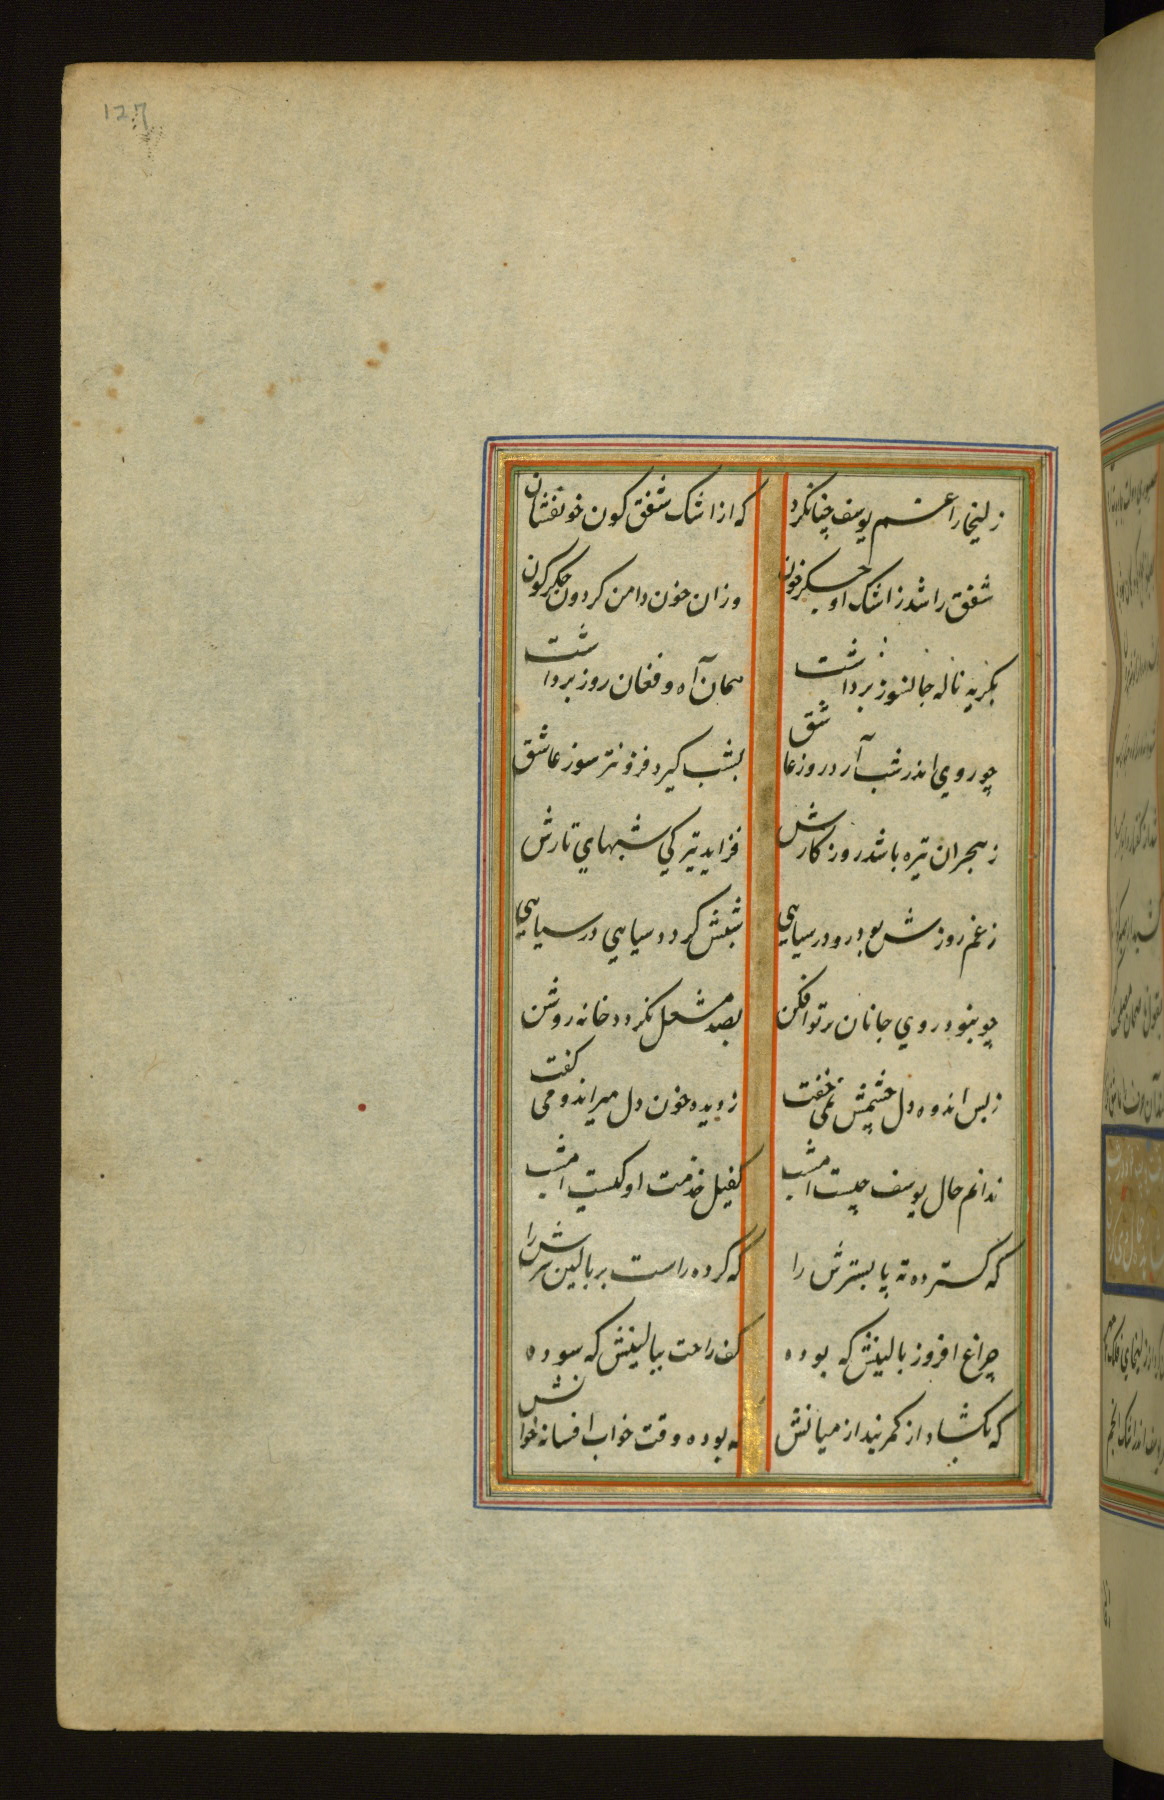 127
زلیخا را غم یوسف چنان کرد
که از اشک شفق کون خونفشان
شفق را شد ز اشک او جگر خون
وزان خون دامن کردون جگر کون
بگریه ناله جانسوز برداشت
همان آه و فغان روز برداشت
چو روی اندر شب آرد روز عاشق
بشب گیرد فزونتر سوز عاشق
ز هجران تیره باشد روزکارش
فزاید تیرکی شبهای تارش
ز غم روزش بود رو در سیاهی
شبش کردد سیاهی در سیاهی
چو بنود روی جانان پرتوافکن
بصد مشعل نکردد خانه روشن
ز بس اندوه دل چشمش نمی خفت
ز دیده خون دل میراند و می کفت
ندانم حال یوسف چیست امشب
کفیل خدمت او کیست امشب
که کسترده ته پا بسترش را
که کرده راست بر بالین سرش را
چراغ افروز بالینش که بوده
کف راحت ببالینش که سوده
که بکشاد از کمر بند از میانش
که بوده وقت خواب افسانه خوانش